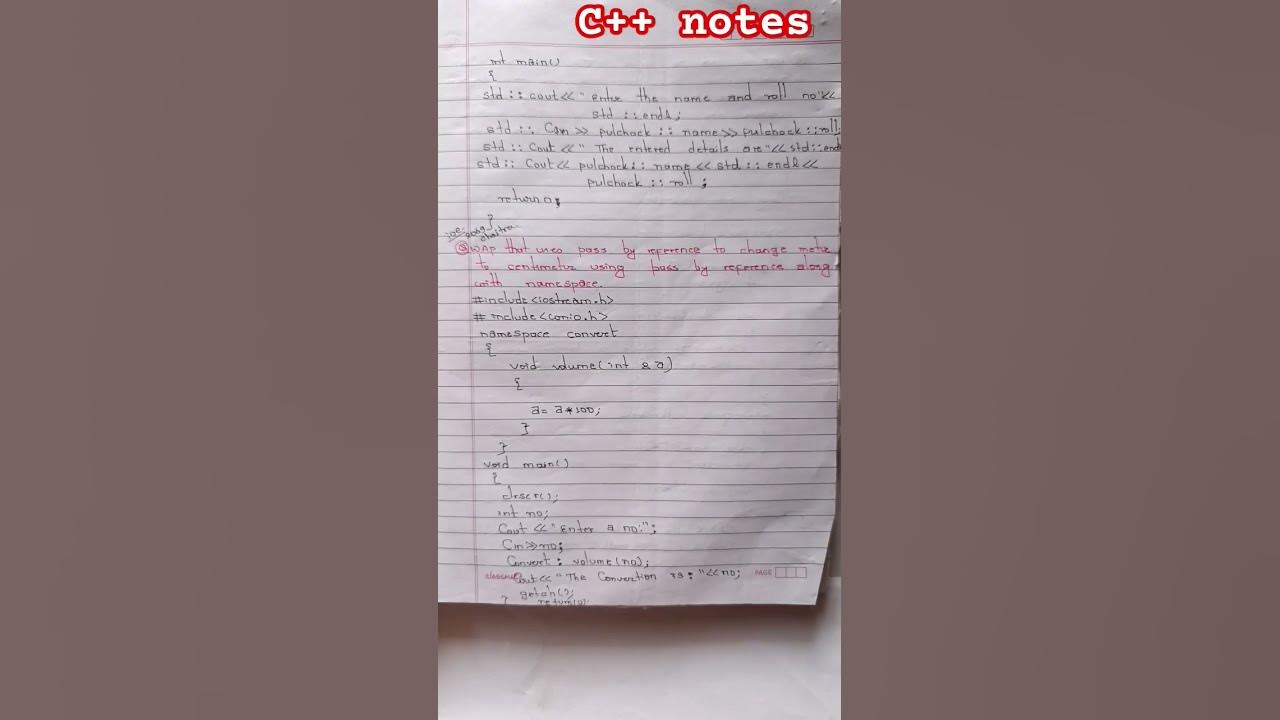 C++ notes
int main()
{
std::cout<<"enter the name and roll no"<<
std::endl;
std::Cin>> pulchock::name>>pulchock::roll;
std::Cout<<" The entered details are"<<std::endl
std::Cout<< pulchock::name<<std::endl<<
pulchock::roll;
return 0;
}
Q WAP that uses pass by reference to change meter
to centimeter using pass by reference along
with namespace.
#include<iostream.h>
#include<conio.h>
namespace convert
{
void volume(int &a)
{
a= a*100;
}
}
void main()
{
clrscr();
int no;
Cout <<"Enter a no:";
Cin>>no;
Convert: volume(no);
classmate
Cout<<"The Convertion is:"<<no;
PAGE
getch();
} return(0);